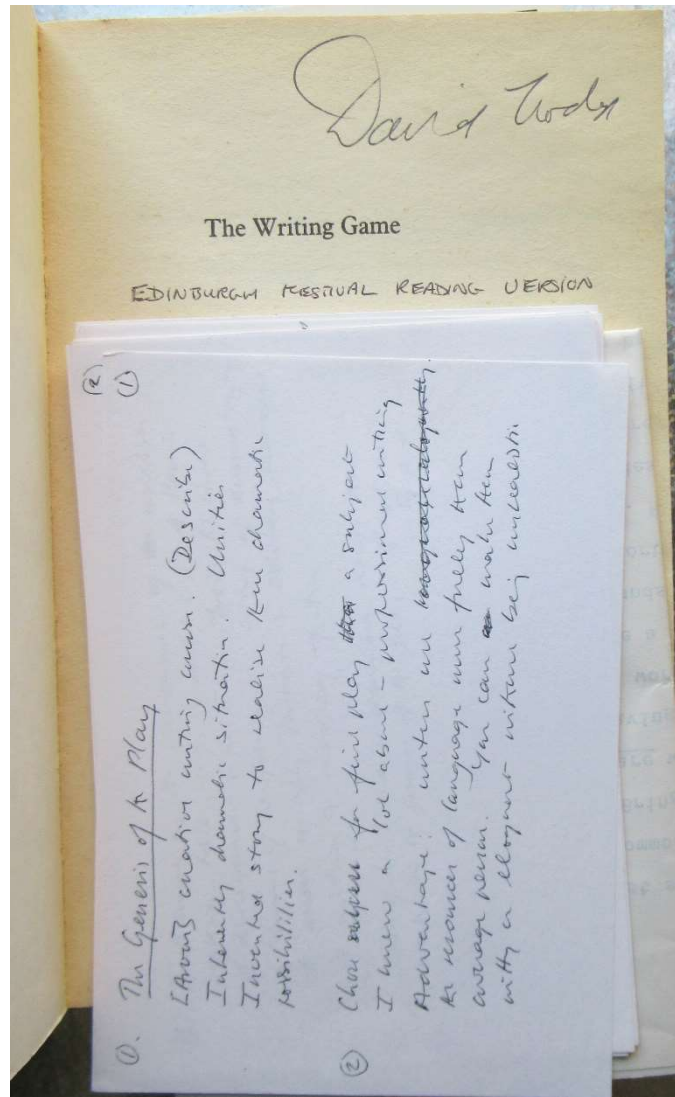 David Lodge
The Writing Game
EDINBURGH FESTIVAL READING VERSION
(2)
(1)
(1). The Genesis of the Play
[Arvon] creative writing course. (Describe)
Inherently dramatic situation. Unities
Invented story to realise these dramatic
possibilities.
(2) Chose for first play a subject
I knew a lot about – professional writing
Advantage: writers use
the resources of language more fully than
average person. You can make them
witty & eloquent without being unrealistic